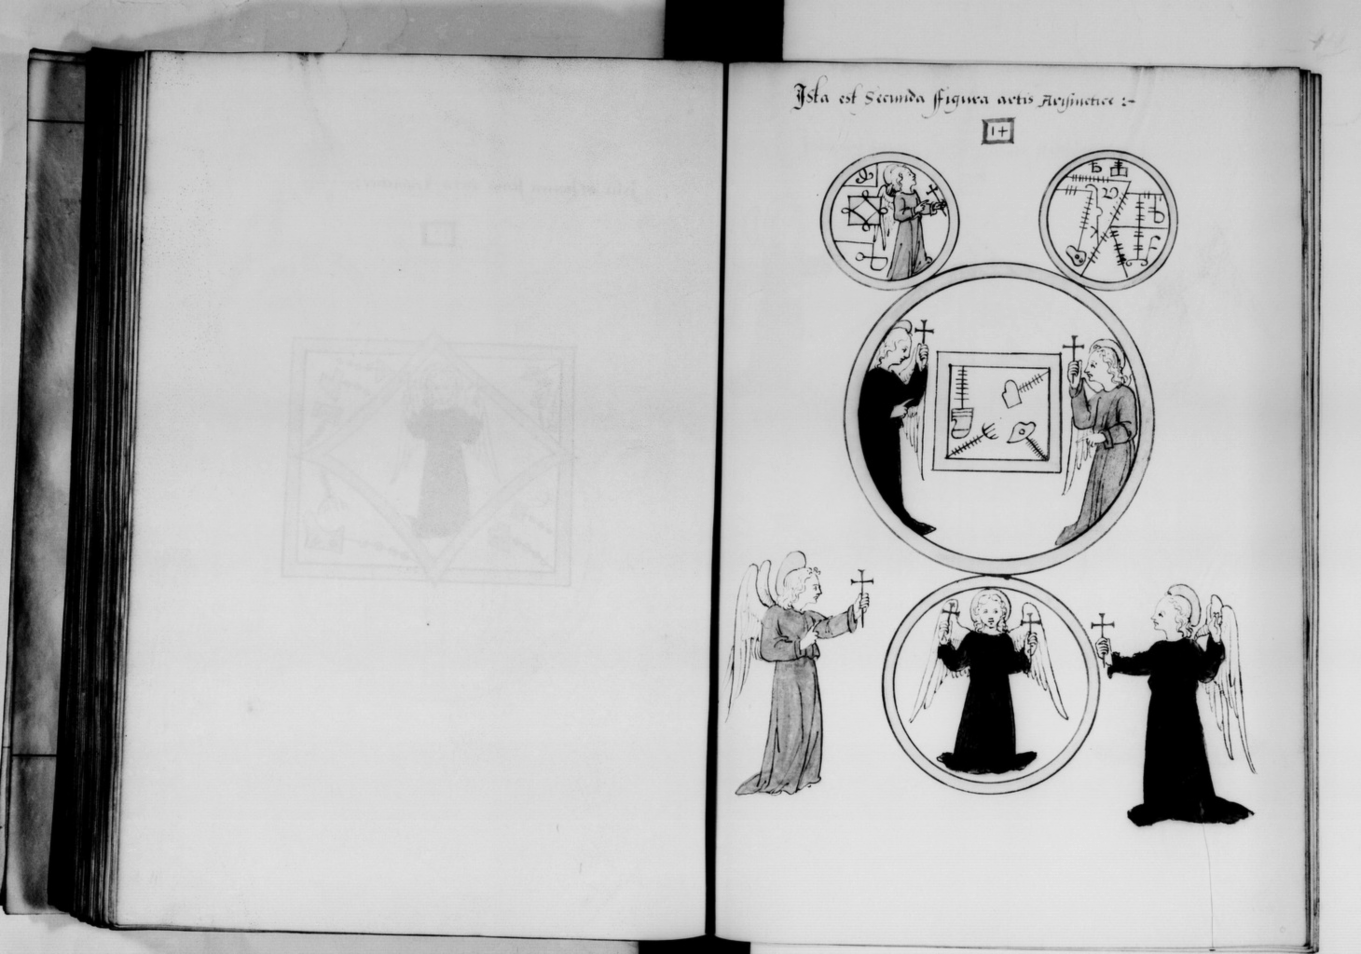 Ista est Secunda ffigura artis Arismetice :~
1+